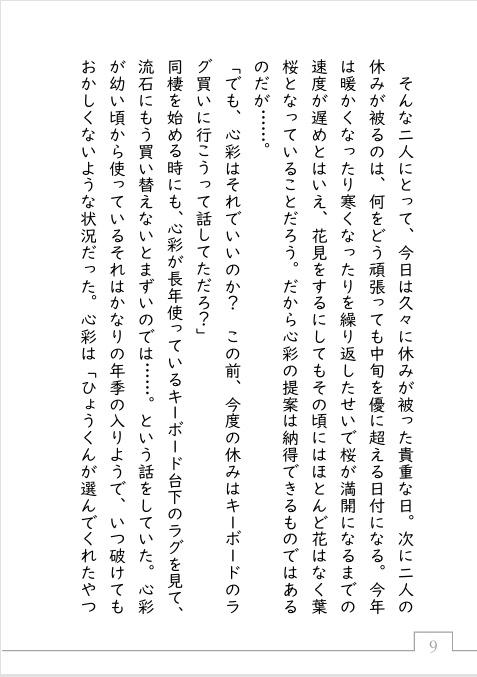 そんな二人にとって、今日は久々に休みが被った貴重な日。次に二人の
休みが被るのは、何をどう頑張っても中旬を優に超える日付になる。今年
は暖かくなったり寒くなったりを繰り返したせいで桜が満開になるまでの
速度が遅めとはいえ、花見をするにしてもその頃にはほとんど花はなく葉
桜となっていることだろう。だから心彩の提案は納得できるものではある
のだが……。
「でも、心彩はそれでいいのか？　この前、今度の休みはキーボードのラ
グ買いに行こうって話してただろ？」
同棲を始める時にも、心彩が長年使っているキーボード台下のラグを見て、
流石にもう買い替えないとまずいのでは……。という話をしていた。心彩
が幼い頃から使っているそれはかなりの年季の入りようで、いつ破けても
おかしくないような状況だった。心彩は「ひょうくんが選んでくれたやつ
9